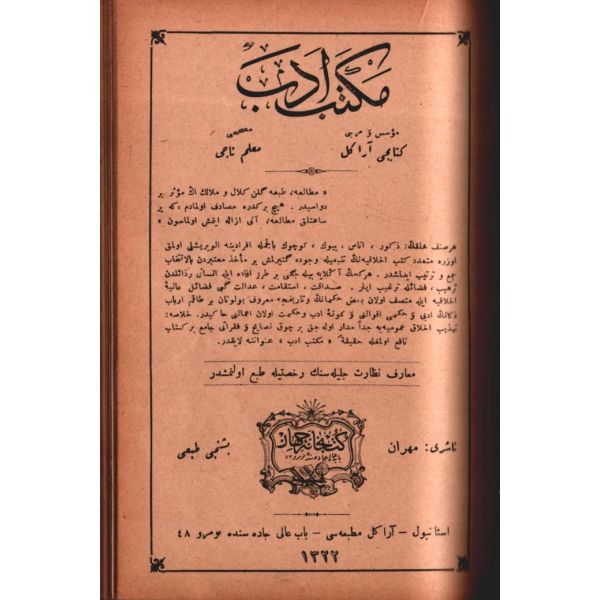 مكتب ادب
مؤسس و مرتبى
كتابجى آراكل
مصححى
معلم ناجى
« مطالعه، طبعه گلن كلال و ملالك اڭ مؤثر بر
دواسيدر . هيچ بر كدره مصادف اولمادم ، كه بر
ساعتلق مطالعه، آنى ازاله ايتمش اولماسون »
هر صنف خلقك: ذكور ، اناث ، بيوك ، كوچوك بالجمله افرادينه الويريشلى اولمق
اوزره متعدد كتب اخلاقيه‌نك تتبعيله وجوده گتيرلمش بر مأخذ معتبردن بالانتخاب
جمع و ترتيب ايدلمشدر . هر كسك آڭلايه بيله جكى بر طرز افاده ايله انسانى رذائلدن
ترهيب ، فضائله ترغيب ايدر . صداقت ، استقامت ، عدالت گبى فضائل عاليهٔ
اخلاقيه ايله متصف اولان بعض حكمانك وتاريخجه معروف بولونان بر طاقم ارباب
ذكانك ادبى و حكمى اقوالنى و نمونهٔ ادب وحكمت اولان اعمالنى حاكيدر. خلاصه :
تهذيب اخلاق عموميه‌يه جداً مدار اوله جق بر چوق نصايح و فقراتى جامع بر كتاب
نافع اولمغله حقيقةً « مكتب ادب » عنواننه لايقدر.
معارف نظارت جليله سنك رخصتيله طبع اولنمشدر
ناشرى: مهران
كتبخانه جهان
بشنجى طبعى
استانبول – آراكل مطبعه سى – باب عالى جاده سنده نومرو ٤٨
١٣٢٢